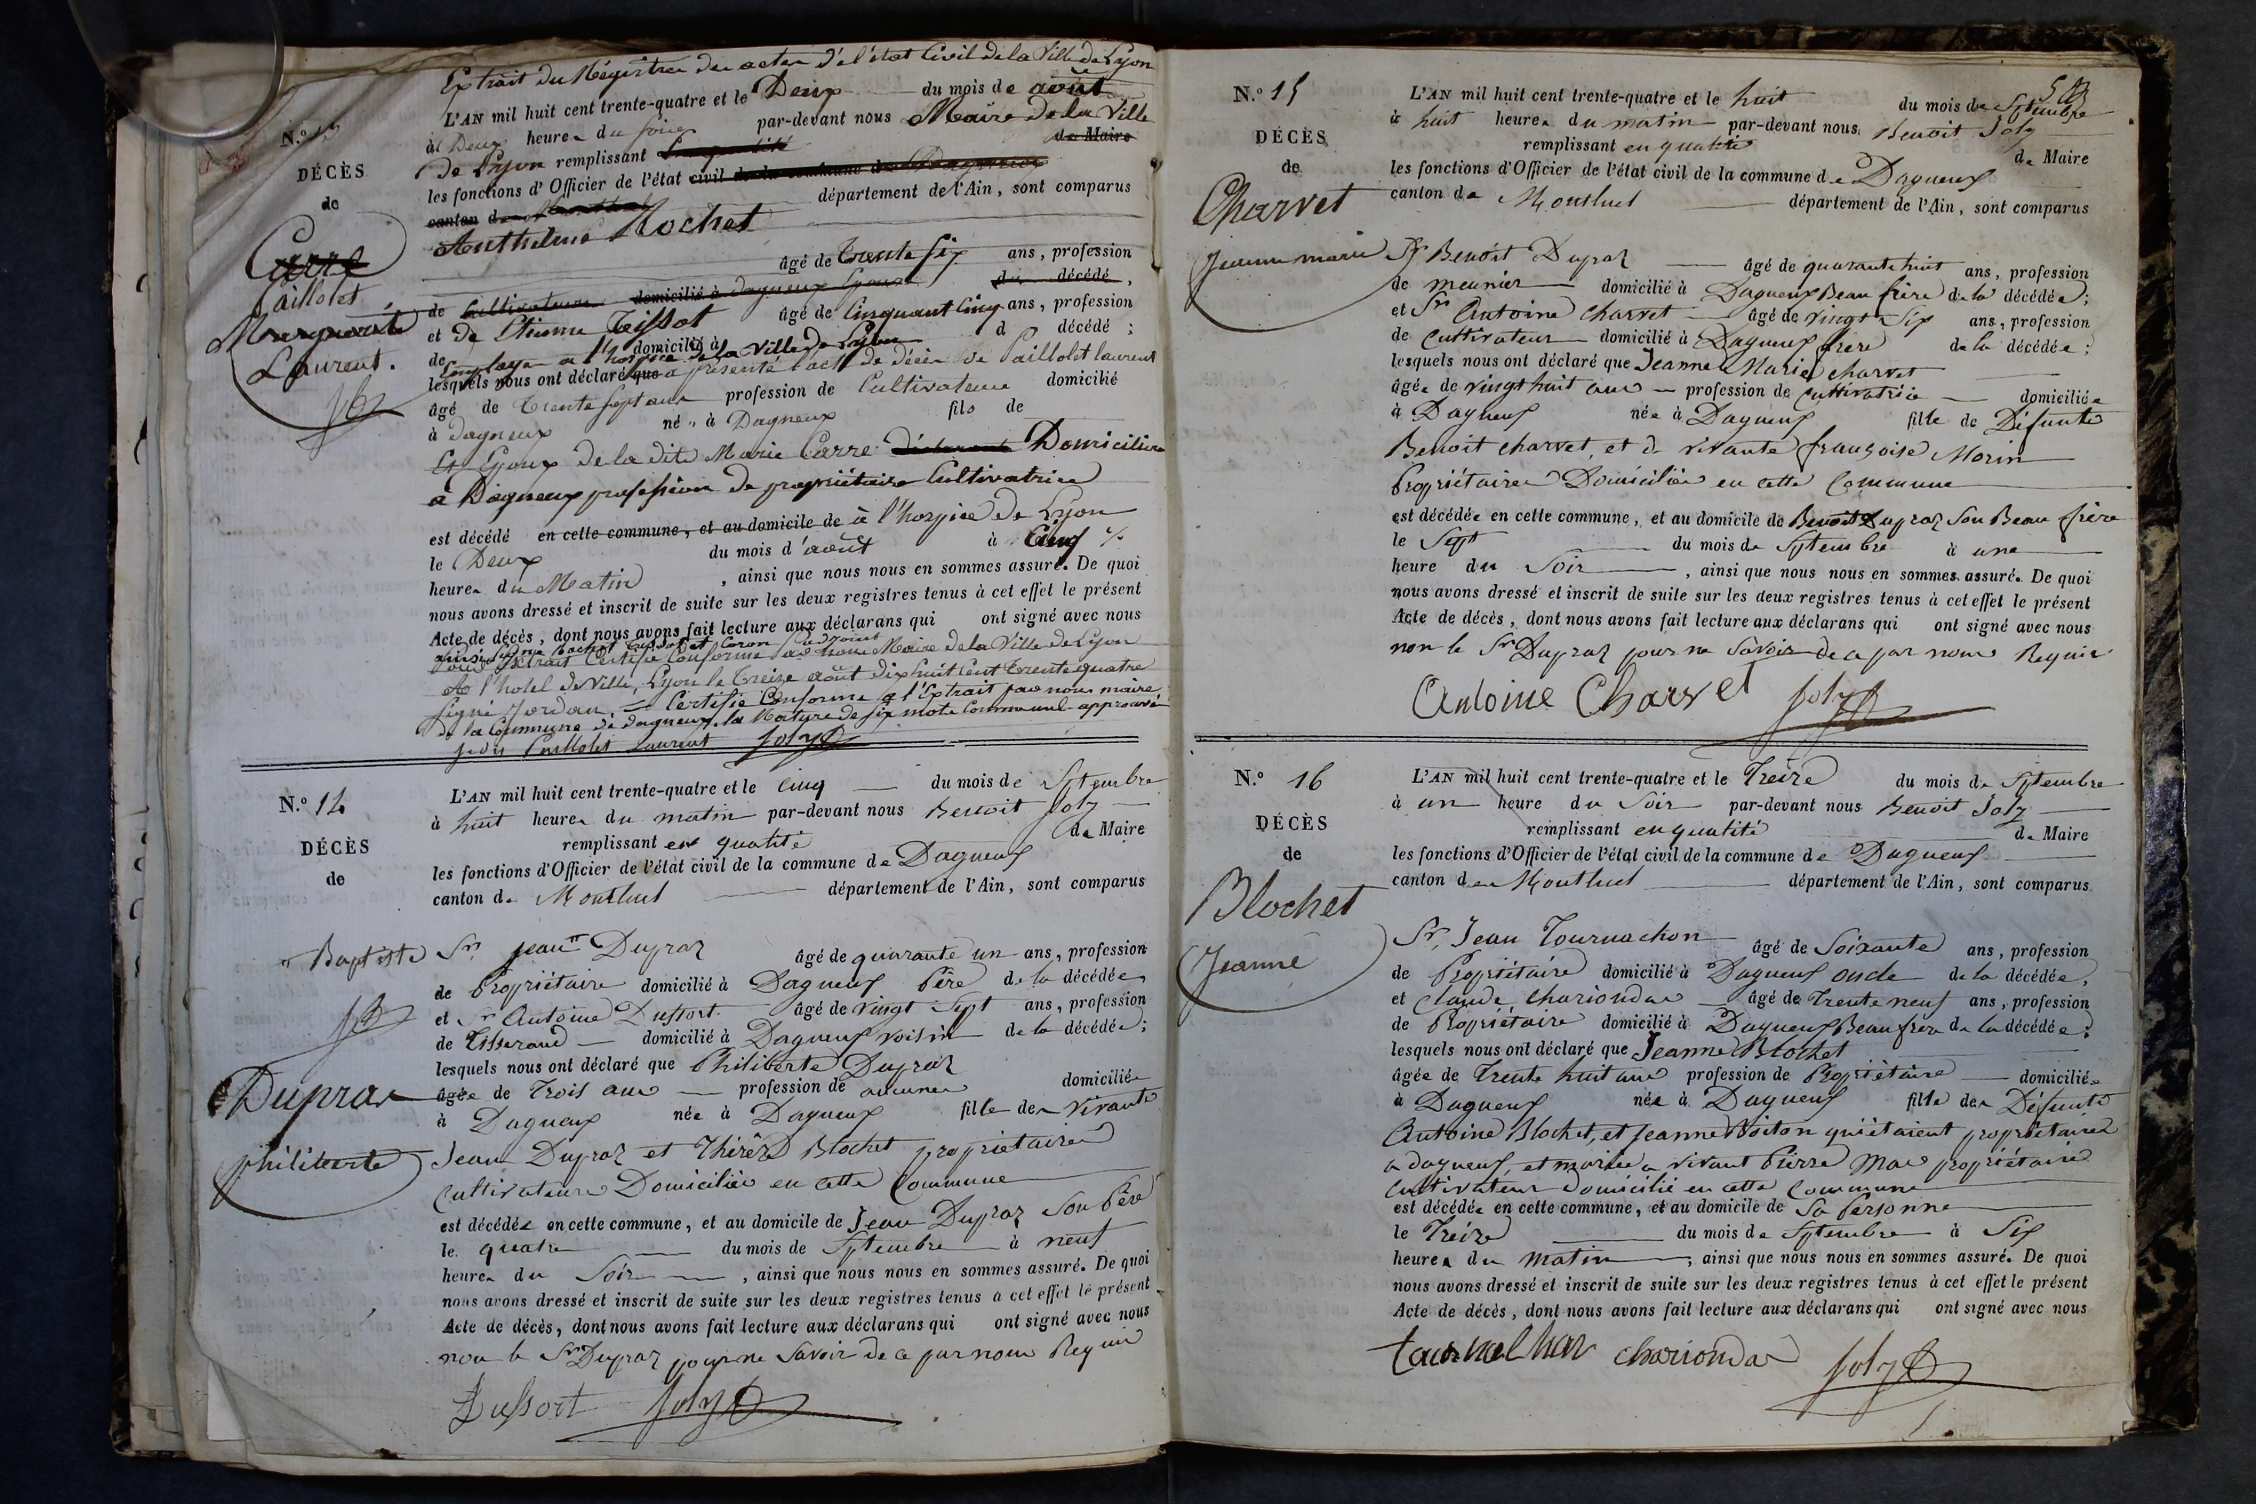 Extrait du Régistre des actes d'é l'état Civil de la Ville de Lyon
N.º 13
L'AN mil huit cent trente-quatre et le Deux du mois de août
à Deux heures du soir par-devant nous Maire de la Ville
de Lyon remplissant de Maire
DÉCÈS
les fonctions d'Officier de l'état civil de la commune de Dagneux
de
canton de Montluel département de l'Ain, sont comparus
Anthelme Rochet
Carre
Paillolet
Marguerite
Laurent.
âgé de trente six ans, profession
de Cultivateur domicilié à dagneux Epoux du décédé,
et de Etienne Teissot âgé de Cinquant Cinq ans, profession
de Employer a l'hospice domicilié à de la Ville de Lyon d décédé ;
lesquels nous ont déclaré que a présenté l'acte de décès de Paillolet laurent
âgé de trente sept ans profession de Cultivateur domicilié
à dagneux né à Dagneux fils de
Et Epoux de la dite Marie Carre Domiciliée
a Dagneux profession de propriétaire Cultivatrice
est décédé en cette commune, et au domicile de à l'hospice de Lyon
le Deux du mois d'août à Cinq
heures du Matin, ainsi que nous nous en sommes assuré. De quoi
nous avons dressé et inscrit de suite sur les deux registres tenus à cet effet le présent
Acte de décès, dont nous avons fait lecture aux déclarans qui ont signé avec nous
ainsi signé Rochet Teissot et Coron
Pour Extrait Certifié Conforme par nous Maire de la Ville de Lyon
A l'hotel de Ville, Lyon le treize août dix huit Cent trente quatre
signé Jordan, = Certifié Conforme a l'Extrait par nous maire
de la Commune de dagneux. la Rature de six mots Commune approuvé
Paillolet Laurent Joly
N.º 14
DÉCÈS
de
L'AN mil huit cent trente-quatre et le Cinq du mois de Septembre
à huit heures du matin par-devant nous Benoit Joly
remplissant en qualité de Maire
les fonctions d'Officier de l'état civil de la commune de Dagneux
canton de Montluel département de l'Ain, sont comparus
Baptiste
Sr. Jean Dupraz âgé de quarante un ans, profession
de Propriétaire domicilié à Dagneux Père de la décédée,
et Sr Antoine Dussort âgé de vingt sept ans, profession
de Tisserand domicilié à Dagneux voisin de la décédée ;
lesquels nous ont déclaré que Philiberte Dupraz
Dupraz
philiberte
âgée de Trois ans profession de aucune domiciliée
à Dagneux née à Dagneux fille des vivants
Jean Dupraz et Thérèze Blochet propriétaires
Cultivateurs Domiciliés en cette Commune
est décédée en cette commune, et au domicile de Jean Dupraz son Père
le quatre du mois de Septembre à neuf
heures du Soir, ainsi que nous nous en sommes assuré. De quoi
nous avons dressé et inscrit de suite sur les deux registres tenus à cet effet le présent
Acte de décès, dont nous avons fait lecture aux déclarans qui ont signé avec nous
non le Sr Dupraz pour ne Savoir de ce par nous Requis
Dussort Joly
N.º 15
DÉCÈS
de
Charvet
Jeanne marie
L'AN mil huit cent trente-quatre et le huit du mois de Septembre
à huit heures du matin par-devant nous, Benoit Joly
remplissant en qualité de Maire
les fonctions d'Officier de l'état civil de la commune de Dagneux
canton de Montluel département de l'Ain, sont comparus
Sr Benoît Dupraz âgé de quarante huit ans, profession
de meunier domicilié à Dagneux Beau frère de la décédée ;
et Sr Antoine Charvet âgé de vingt Six ans, profession
de Cultivateur domicilié à Dagneux frère de la décédée ;
lesquels nous ont déclaré que Jeanne Marie Charvet
âgée de vingt huit ans profession de Cultivatrice domiciliée
à Dagneux née à Dagneux fille de Défunte
Benoit Charvet, et de vivante françoise Morin
Propriétaires Domiciliés en cette Commune
est décédée en cette commune, et au domicile de Benoit Dupraz son Beau frère
le Sept du mois de Septembre à une
heure du Soir, ainsi que nous nous en sommes assuré. De quoi
nous avons dressé et inscrit de suite sur les deux registres tenus à cet effet le présent
Acte de décès, dont nous avons fait lecture aux déclarans qui ont signé avec nous
non le Sr Dupraz pour ne Savoir de ce par nous Requis
Antoine Charvet Joly
N.º 16
DÉCÈS
de
Blochet
Jeanne
L'AN mil huit cent trente-quatre et le Treize du mois de Septembre
à un heure du Soir par-devant nous Benoit Joly
remplissant en qualité de Maire
les fonctions d'Officier de l'état civil de la commune de Dagneux
canton de Montluel département de l'Ain, sont comparus
Sr. Jean Tournachon âgé de Soixante ans, profession
de Propriétaire domicilié à Dagneux oncle de la décédée,
et Claude Chariondas âgé de Trente neuf ans, profession
de Propriétaire domicilié à Dagneux Beau frère de la décédée ;
lesquels nous ont déclaré que Jeanne Blochet
âgée de Trente huit ans profession de Propriétaire domiciliée
à Dagneux née à Dagneux fille des Défunts
Antoine Blochet, et Jeanne Boiton qui étaient propriétaires
a dagneux, et mariée a vivant Pierre Mas propriétaire
Cultivateur domicilié en cette Commune
est décédée en cette commune, et au domicile de Sa Personne
le Treize du mois de Septembre à Six
heures du matin, ainsi que nous nous en sommes assuré. De quoi
nous avons dressé et inscrit de suite sur les deux registres tenus à cet effet le présent
Acte de décès, dont nous avons fait lecture aux déclarans qui ont signé avec nous
chariondas Joly